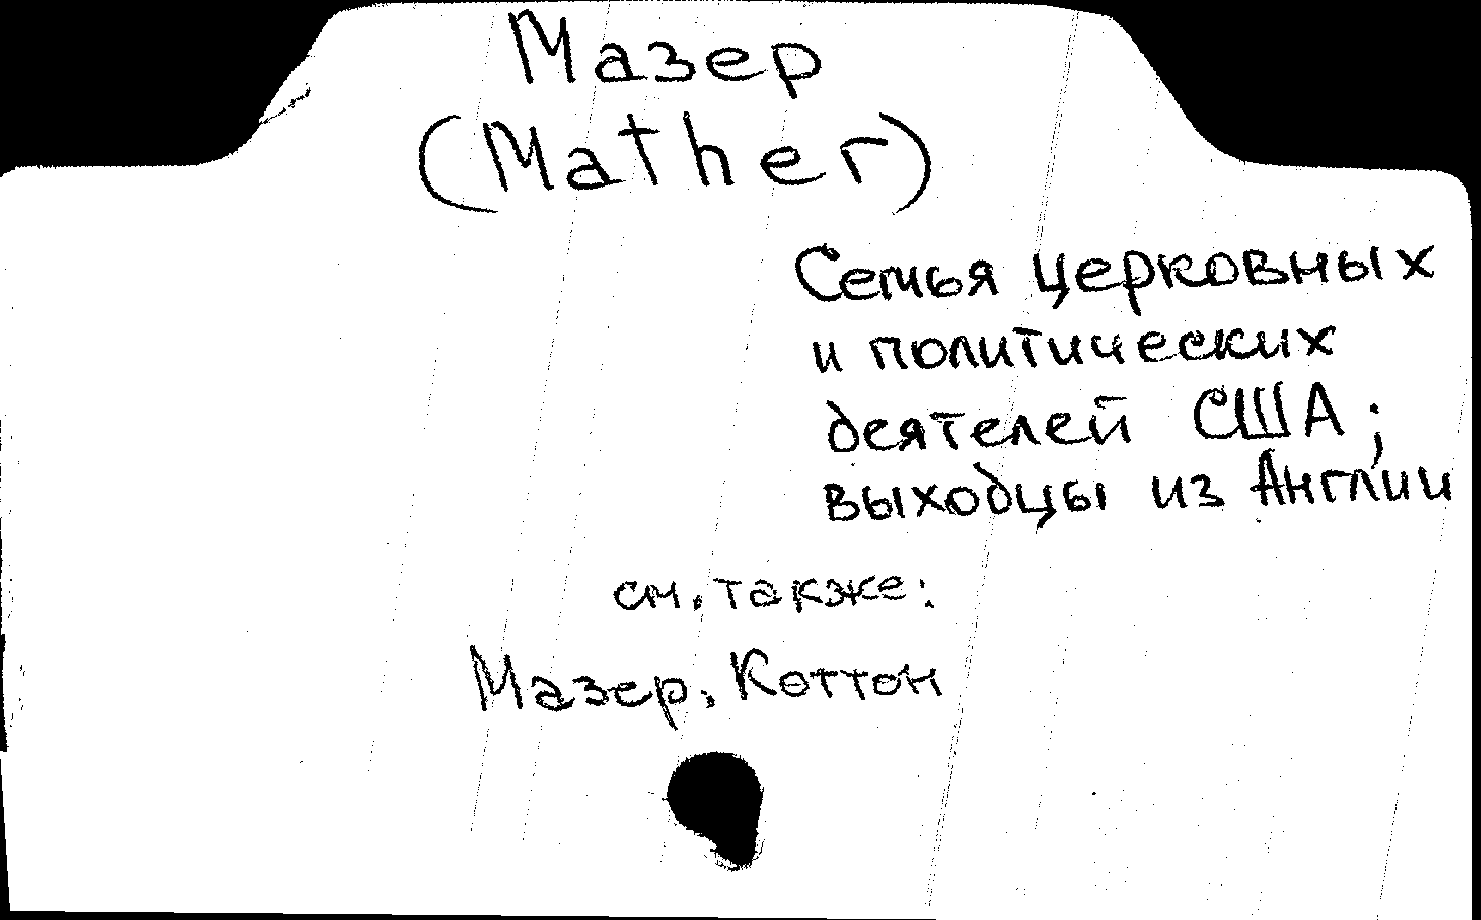 Мазер
(Mather)
Семья церковных
и политических
деятелей США;
выходцы из Англии
см. также:
Мазер, Коттон